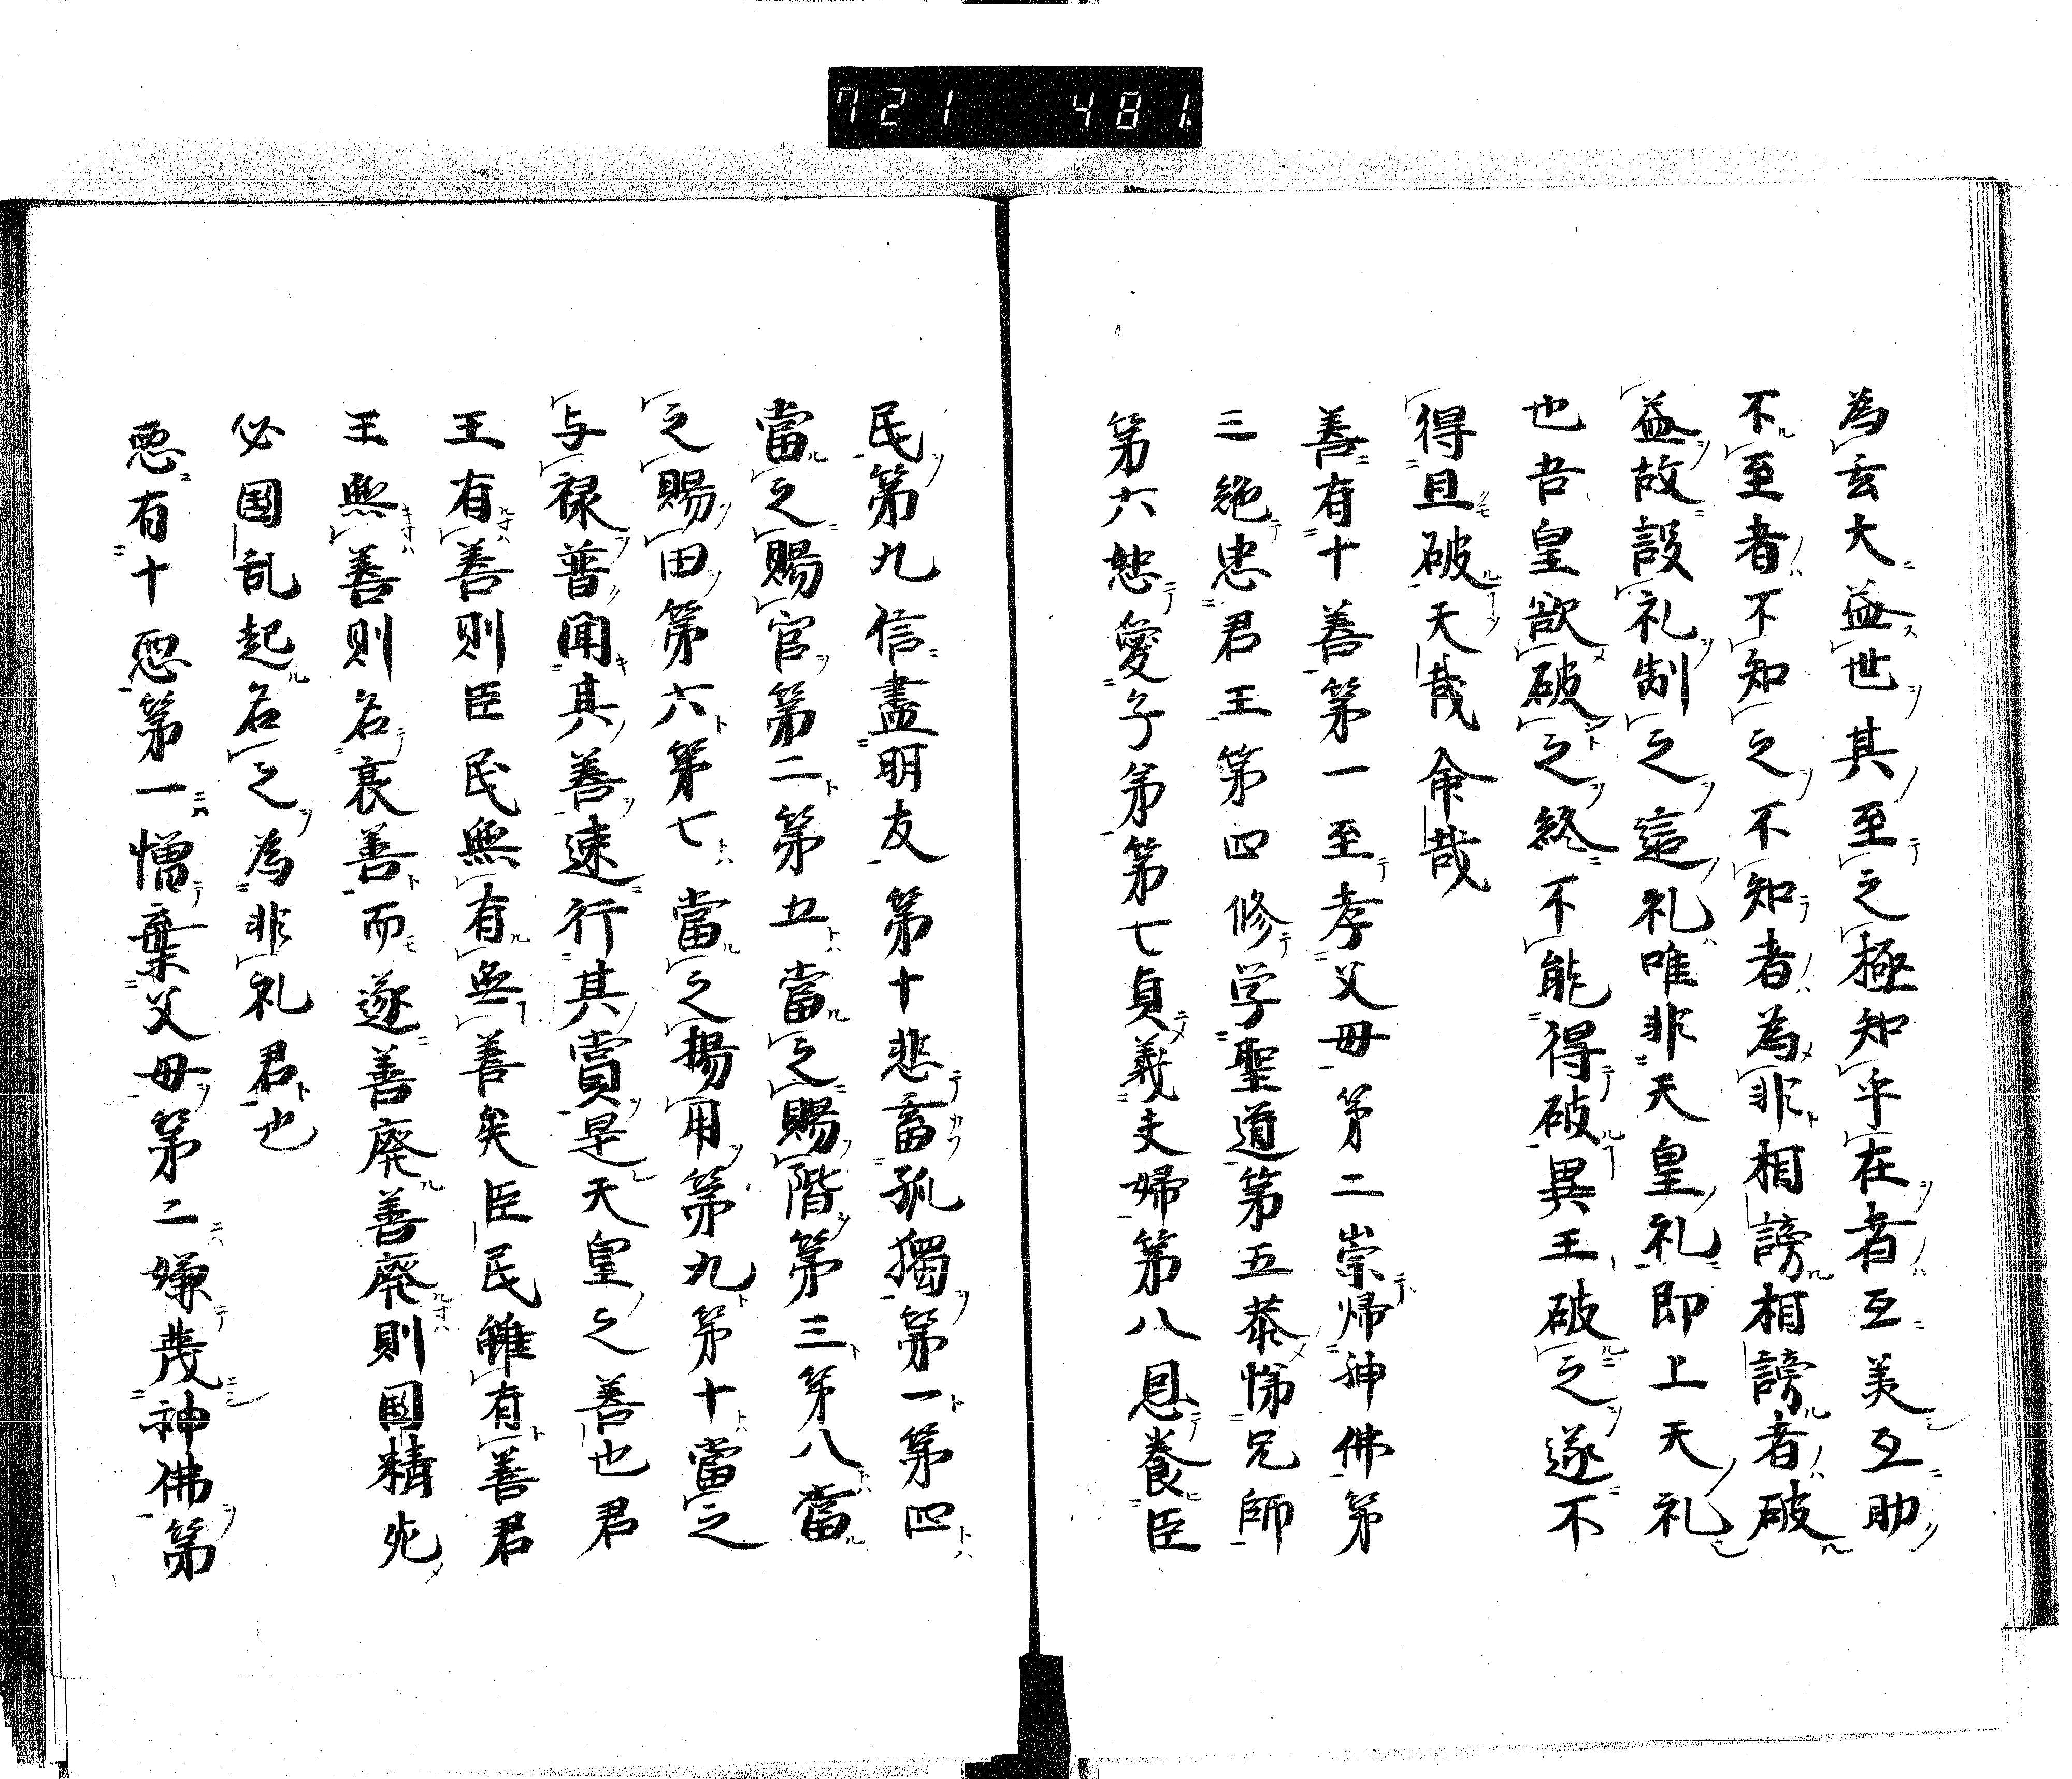 721 481.
為玄大益世其至之極知乎在者互美互助
不至者不知之不知者為非相謗相謗者破
益故設礼制之這礼唯非天皇礼即上天礼
也吾皇欲破之終不能得破異王破之遂不
得且破天哉命哉
善有十善第一至孝父母第二崇帰神佛第
三絶忠君王第四修学聖道第五恭悌兄師
第六恕愛子弟第七貞義夫婦第八恩養臣
民第九信盡朋友第十悲畜孤獨第一第四
當之賜官第二第五當之賜階第三第八當
之賜田第六第七當之揚用第九第十當之
与禄普聞其善速行其賞是天皇之善也君
王有善則臣民無有無善矣臣民雖有善君
王無善則名衰善而遂善廢善廢則國精死
必国乱起名之為非礼君也
悪有十悪第一憎棄父母第二嫌蔑神佛第